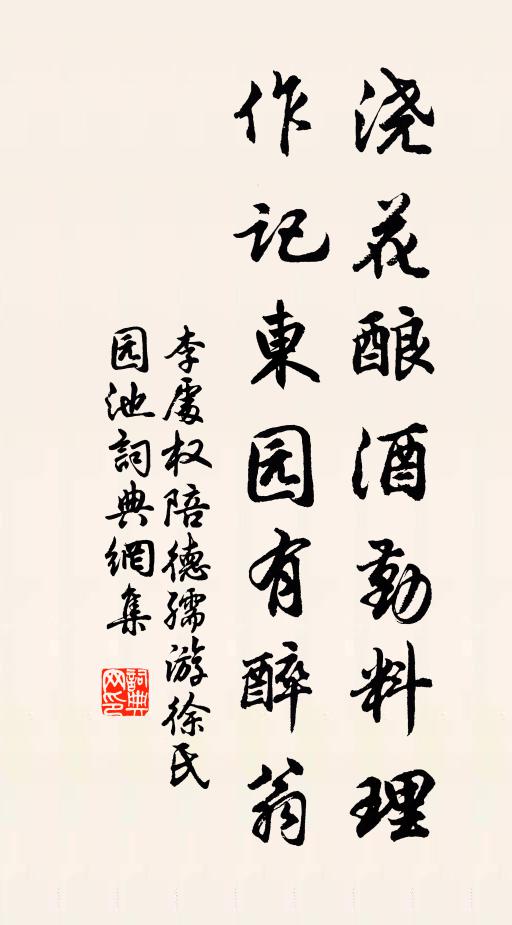 浇花酿酒勤料理
作记東园有醉翁
李處权陪德孺游徐氏
园池詞典網集
詞典
网印